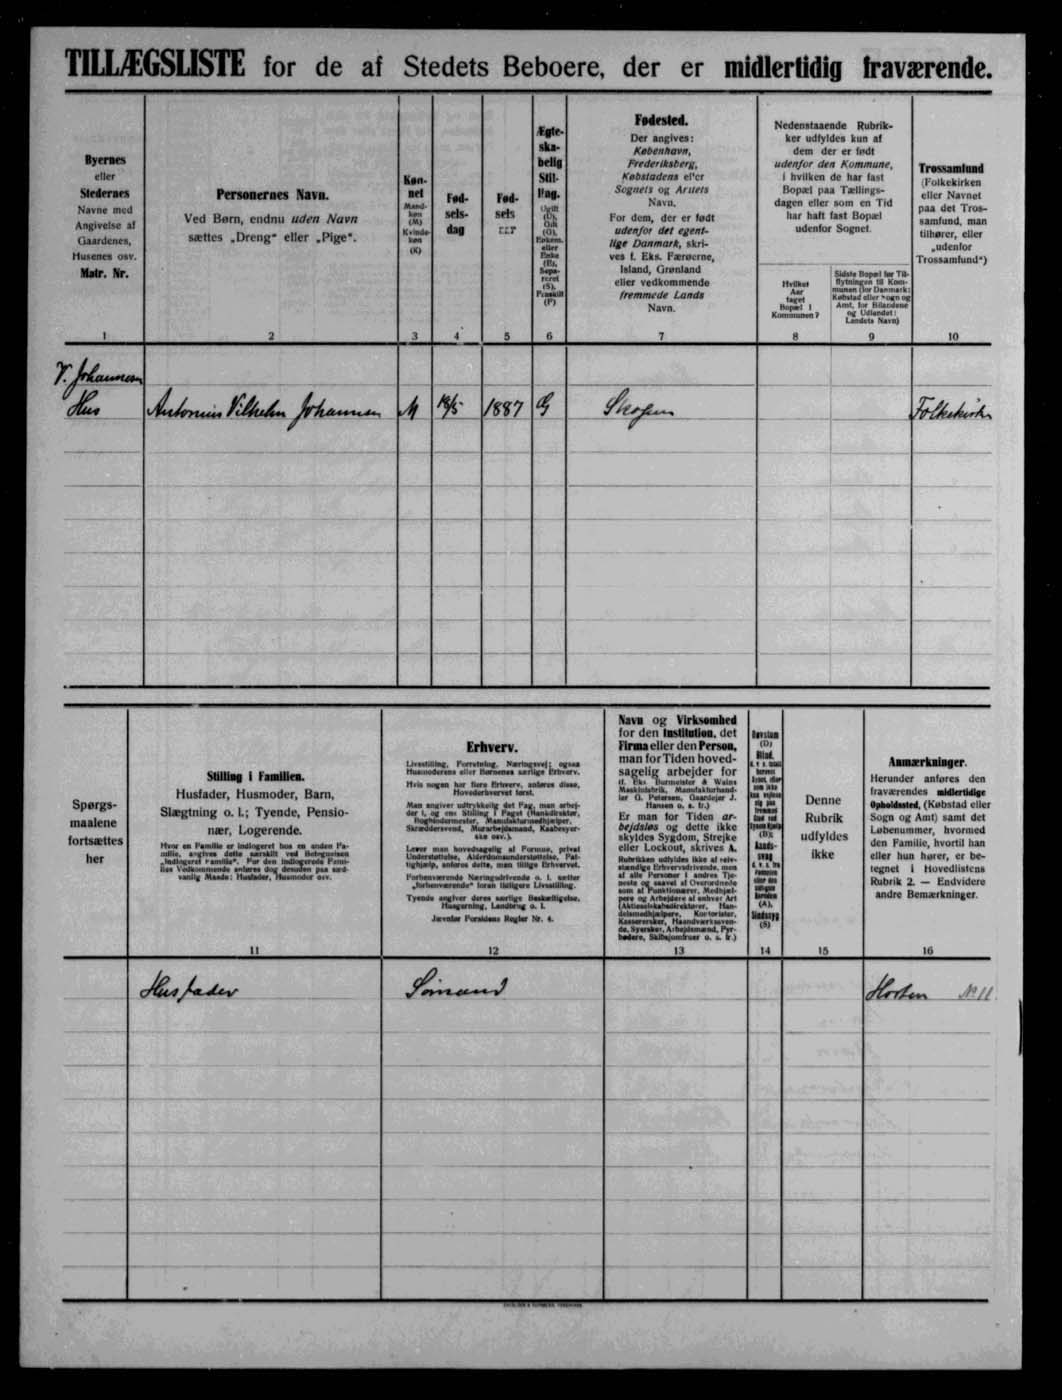 TILLÆGSLISTE for de af Stedets Beboere, der er midlertidig fraværende.
Byernes
eller
Stedernes
Navne med
Angivelse af
Gaardenes,
Husenes osv.
Matr. Nr.
1
Personernes Navn.
Ved Børn, endnu uden Navn
sættes „Dreng“ eller „Pige“.
2
Køn-
net
Mand-
køn
(M)
Kvinde-
køn
(K)
3
Fød-
sels-
dag
4
Fød-
sels
5
Ægte-
ska-
belig
Stil-
ling.
Ugift
(U),
Gift
(G),
Enkem.
eller
Enke
(E),
Sepa-
reret
(S),
Fraskilt
(F)
6
Fødested.
Der angives:
København,
Frederiksberg,
Købstadens eller
Sognets og Amtets
Navn.
For dem, der er født
udenfor det egent-
lige Danmark, skri-
ves f. Eks. Færøerne,
Island, Grønland
eller vedkommende
fremmede Lands
Navn.
7
Nedenstaaende Rubrik-
ker udfyldes kun af
dem der er født
udenfor den Kommune,
i hvilken de har fast
Bopæl paa Tællings-
dagen eller som en Tid
har haft fast Bopæl
udenfor Sognet.
Hvilket
Aar
taget
Bopæl i
Kommunen?
8
Sidste Bopæl før Til-
flytningen til Kom-
munen (for Danmark:
Købstad eller Sogn og
Amt, for Bilandene
og Udlandet:
Landets Navn)
9
Trossamfund
(Folkekirken
eller Navnet
paa det Tros-
samfund, man
tilhører, eller
„udenfor
Trossamfund“)
10
V. Johannesen
Hus Antonius Vilhelm Johannesen M 18/5 1887 G Skagen Folkekirken
Spørgs-
maalene
fortsættes
her
Stilling i Familien.
Husfader, Husmoder, Barn,
Slægtning o. l.; Tyende, Pensio-
nær, Logerende.
Hvor en Familie er indlogeret hos en anden Fa-
milie, angives dette særskilt ved Betegnelsen
„Indlogeret Familie“. For den indlogerede Fami-
lies Vedkommende anføres dog desuden paa sæd-
vanlig Maade: Husfader, Husmoder osv.
11
Erhverv.
Livsstilling, Forretning, Næringsvej; ogsaa
Husmoderens eller Børnenes særlige Erhverv.
Hvis nogen har flere Erhverv, anføres disse,
Hovederhvervet først.
Man angiver udtrykkelig det Fag, man arbej-
der i, og ens Stilling i Faget (Handkdirektør,
Bogbindermester, Manufakturmedhjælper,
Skræddersvend, Murarbejdsmand, Kaabesyer-
ske osv.).
Lever man hovedsagelig af Formue, privat
Understøttelse, Alderdomsunderstøttelse, Fat-
tighjælp, anføres dette, man tillige Erhvervet.
Forhenværende Næringsdrivende o. l. sætter
„forhenværende“ foran tidligere Livsstilling.
Tyende angiver deres særlige Beskæftigelse,
Husgerning, Landbrug o. l.
Jævnfør Forsidens Regler Nr. 4.
12
Navn og Virksomhed
for den Institution, det
Firma eller den Person,
man for Tiden hoved-
sagelig arbejder for
(f. Eks. Burmeister & Wains
Maskinfabrik, Manufakturhand-
ler G. Petersen, Gaardejer J.
Hansen o. s. fr.)
Er man for Tiden ar-
bejdsløs og dette ikke
skyldes Sygdom, Strejke
eller Lockout, skrives A.
Rubrikken udfyldes ikke af selv-
stændige Erhvervsdrivende, men
af alle Personer i andres Tje-
neste og saavel af Overordnede
som af Funktionærer, Medhjæl-
pere og Arbejdere af enhver Art
(Aktieselskabsdirektører, Han-
delsmedhjælpere, Kontorister,
Kassererske, Haandværkssven-
de, Syersker, Arbejdsmænd, Fyr-
bødere, Skibsjomfruer o. s. fr.)
13
Døvstum
(D)
Blind,
(B),
Aands-
svag
(A),
Sindssyg
(S)
14
Denne
Rubrik
udfyldes
ikke
15
Anmærkninger.
Herunder anføres den
fraværendes midlertidige
Opholdssted, (Købstad eller
Sogn og Amt) samt det
Løbenummer, hvormed
den Familie, hvortil han
eller hun hører, er be-
tegnet i Hovedlistens
Rubrik 2. — Endvidere
andre Bemærkninger.
16
Husfader Sømand Horten No 11